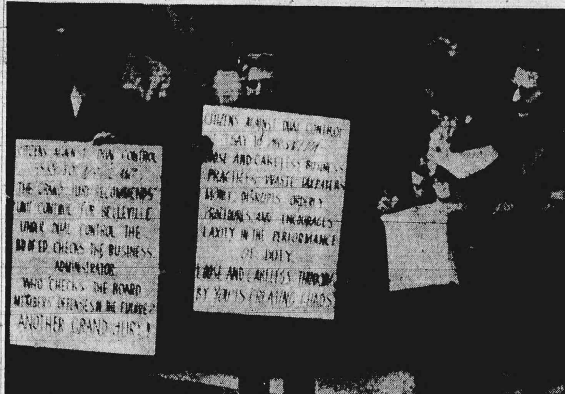 CITIZENS AGAINST DUAL CONTROL
SAY TO
THE GRAND JURY RECOMMENDS
UNIT CONTROL FOR BELLEVILLE
UNDER DUAL CONTROL THE
BD OF ED CHECKS THE BUSINESS
ADMINISTRATOR
WHO CHECKS THE BOARD
MEMBERS OFFENSES IN THE FUTURE?
ANOTHER GRAND JURY!
CITIZENS AGAINST DUAL CONTROL
SAY TO
LOOSE AND CARELESS BUSINESS
PRACTICES WASTE TAXPAYERS
MONEY, DISRUPTS ORDERLY
AND ENCOURAGES
LAXITY IN THE PERFORMANCE
OF DUTY
LOOSE AND CARELESS THINKING
BY CREATING CHAOS